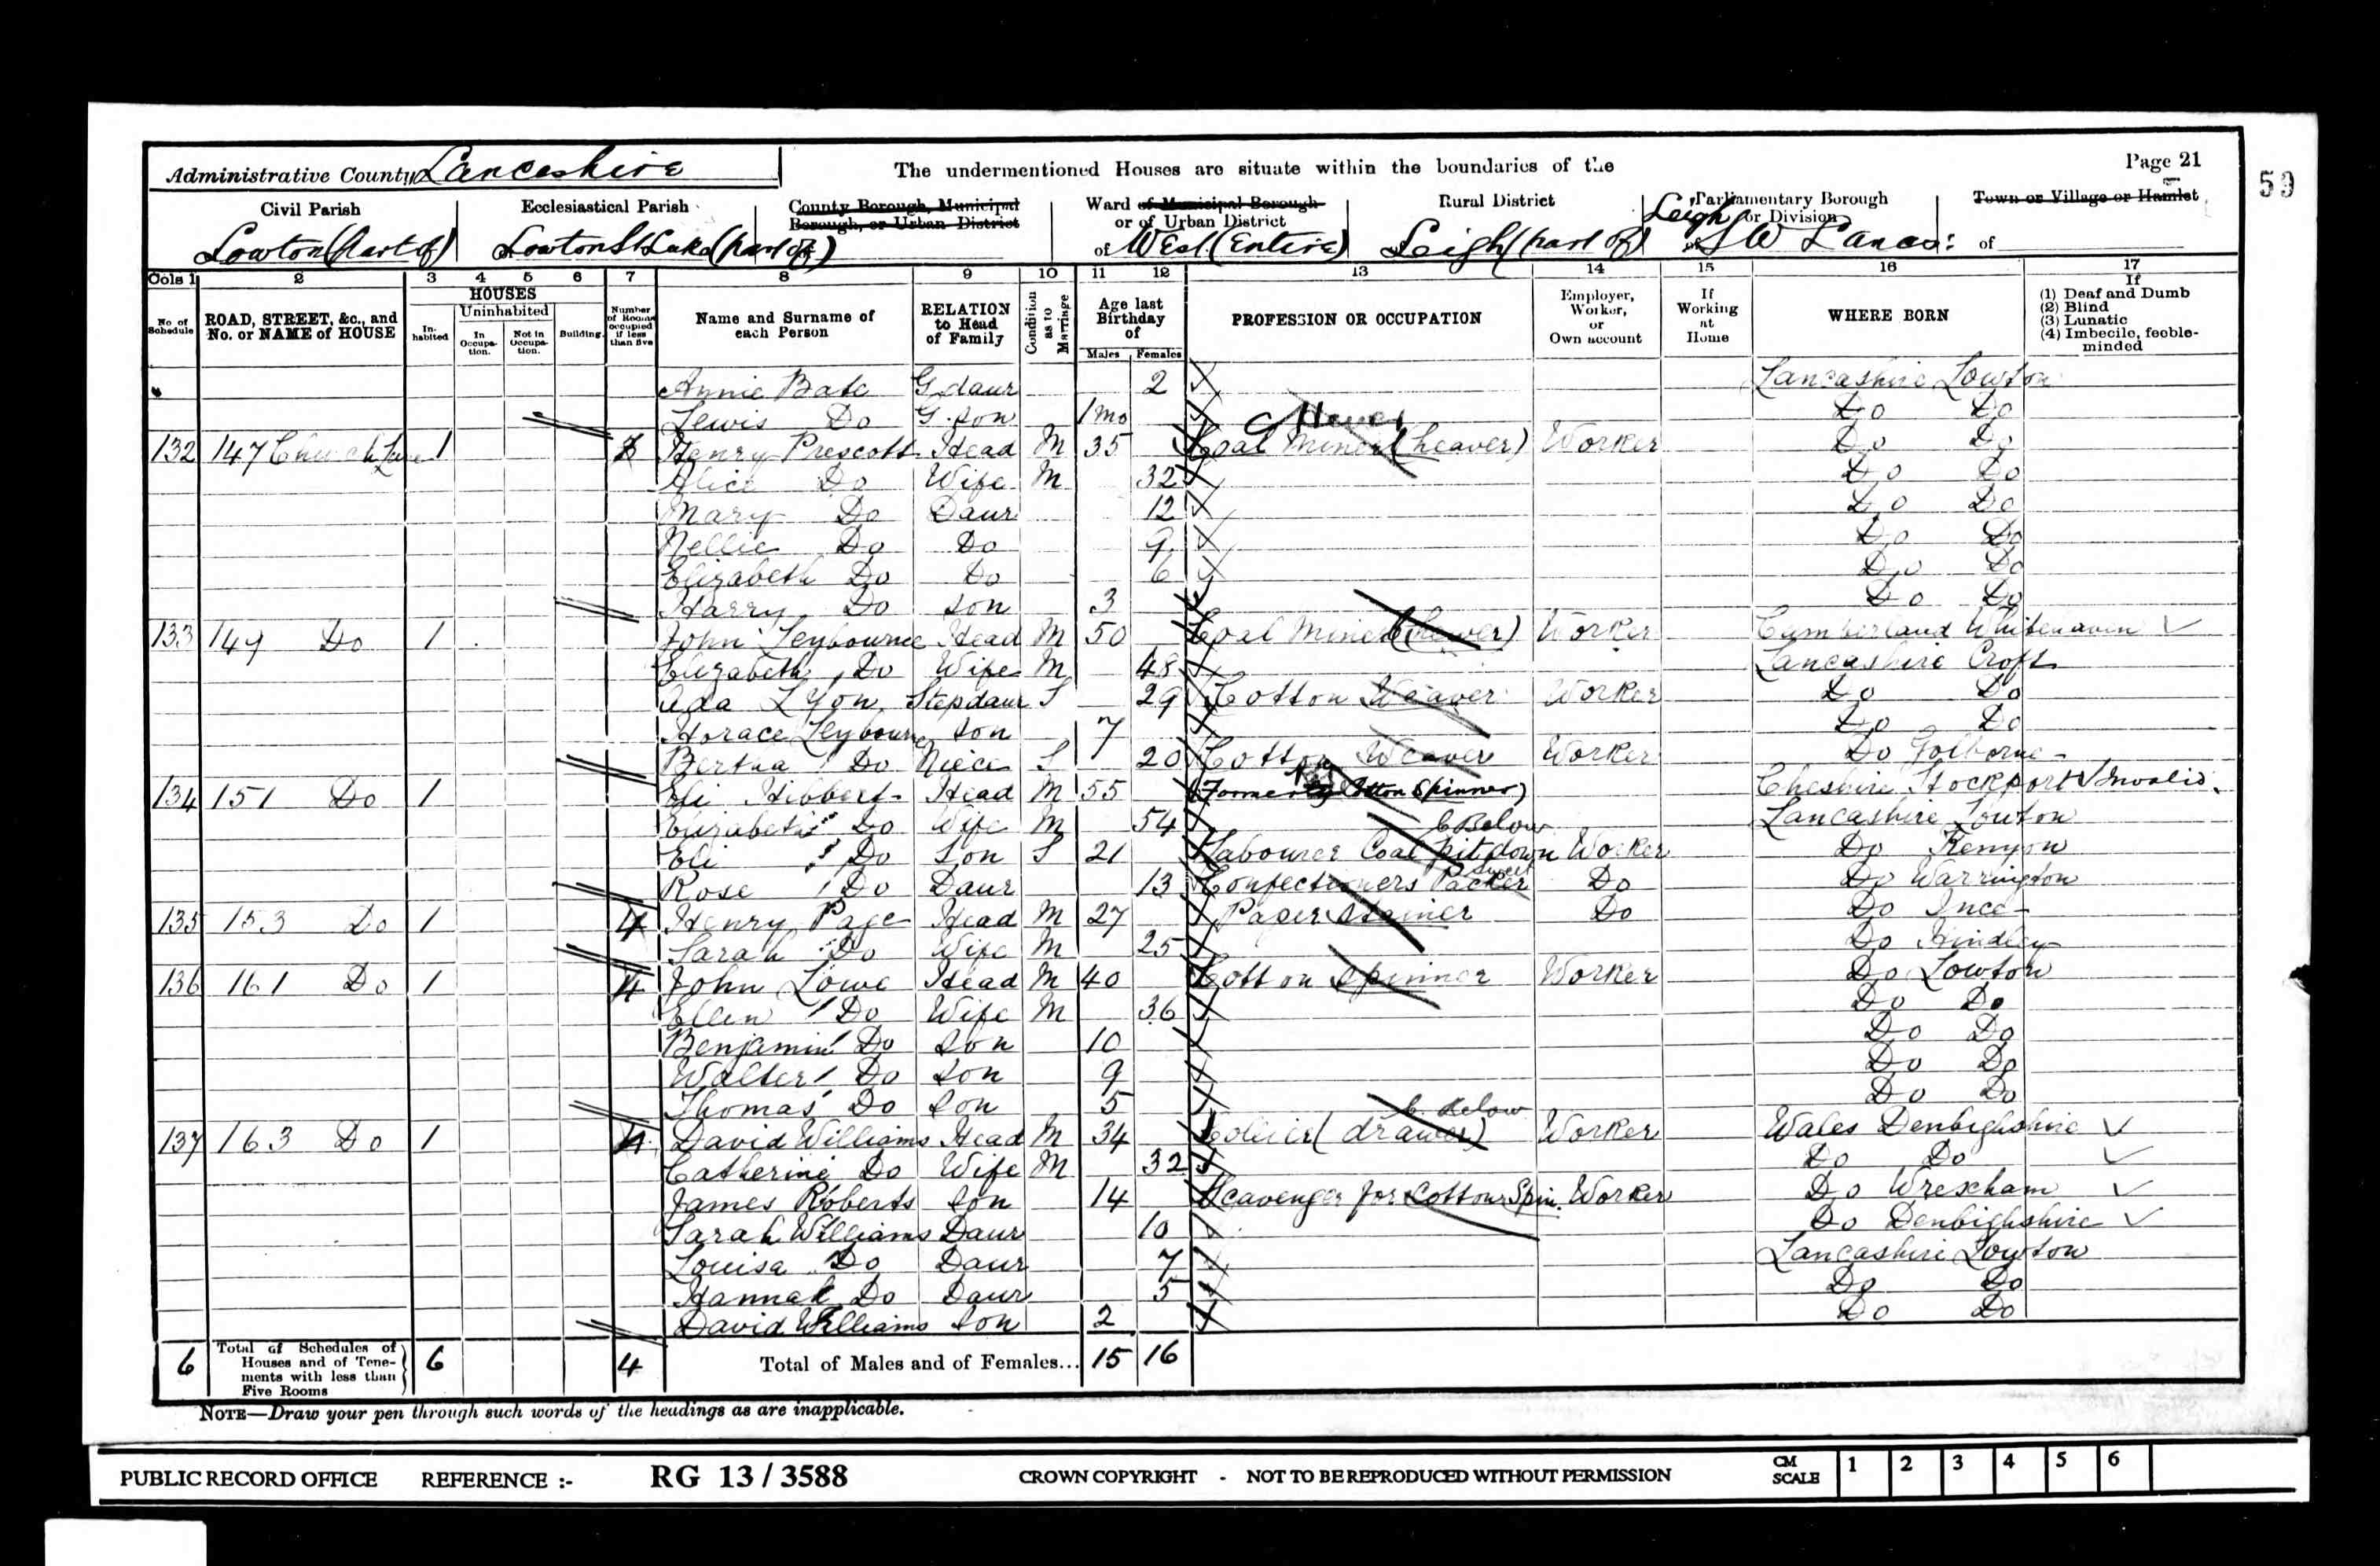 Administrative County Lancashire
The undermentioned Houses are situate within the boundaries of the
Page 21
59
Civil Parish
Lowton (Part of)
Ecclesiastical Parish
Lowton St Luke (part of)
County Borough, Municipal Borough, or Urban District
Ward of Municipal Borough or of Urban District
of West (Entire)
Rural District
Leigh (part of)
Parliamentary Borough or Division
Leigh
of S W Lancs:
Town or Village or Hamlet
of
Cols 1 2 3 4 5 6 7 8 9 10 11 12 13 14 15 16 17
No. of Schedule
ROAD, STREET, &c., and No. or NAME of HOUSE
HOUSES
In-habited
Uninhabited
In Occupa-tion.
Not in Occupa-tion.
Building
Number of Rooms occupied if less than five
Name and Surname of each Person
RELATION to Head of Family
Condition as to Marriage
Age last Birthday of
Males Females
PROFESSION OR OCCUPATION
Employer, Worker, or Own account
If Working at Home
WHERE BORN
If
(1) Deaf and Dumb
(2) Blind
(3) Lunatic
(4) Imbecile, feeble-minded
Annie Bate G daur 2 Lancashire Lowton
Lewis Do G. son 1 mo Do Do
Hewer
132 147 Church Lane 1 Henry Prescott Head M 35 Coal Miner (heaver) Worker Do Do
Alice Do Wife M 32 Do Do
Mary Do Daur 12 Do Do
Nellie Do Do 9 Do Do
Elizabeth Do Do 6 Do Do
Harry Do Son 3 Do Do
133 149 Do 1 John Leybourne Head M 50 Coal Miner (hewer) Worker Cumberland Whitehaven
Elizabeth Do Wife M 48 Lancashire Croft
Ada Lyon Stepdaur S 29 Cotton Weaver Worker Do Do
Horace Leybourne Son 7 Do Do
Bertha Do Niece S 20 Cotton Weaver Worker Do Golborne
134 151 Do 1 Eli Hibbert Head M 55 (Formerly Cotton Spinner) Cheshire Stockport Invalid.
Elizabeth Do Wife M 54 Lancashire Lowton
Below
Eli Do Son S 21 Labourer Coal pit down Worker Do Kenyon
Sweet
Rose Do Daur 13 Confectioners Packer Do Do Warrington
135 153 Do 1 4 Henry Page Head M 27 Paper Stainer Do Do Ince
Sarah Do Wife M 25 Do Hindley
136 161 Do 1 4 John Lowe Head M 40 Cotton Spinner Worker Do Lowton
Ellen Do Wife M 36 Do Do
Benjamin Do Son 10 Do Do
Walter Do Son 9 Do Do
Thomas Do Son 5 Do Do
Below
137 163 Do 1 4 David Williams Head M 34 Collier (drawer) Worker Wales Denbighshire
Catherine Do Wife M 32 Do Do
James Roberts Son 14 Scavenger for Cotton Spin. Worker Do Wrexham
Sarah Williams Daur 10 Do Denbighshire
Louisa Do Daur 7 Lancashire Lowton
Hannah Do Daur 5 Do Do
David Williams Son 2 Do Do
6 Total of Schedules of Houses and of Tene-ments with less than Five Rooms 6 4 Total of Males and of Females... 15 16
NOTE—Draw your pen through such words of the headings as are inapplicable.
PUBLIC RECORD OFFICE REFERENCE :- RG 13 / 3588 CROWN COPYRIGHT - NOT TO BE REPRODUCED WITHOUT PERMISSION CM SCALE 1 2 3 4 5 6